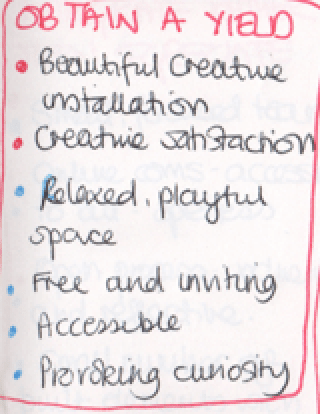 OBTAIN A YIELD
• Beautiful Creative
installation
• Creative satisfaction
• Relaxed, playful
space
• Free and inviting
• Accessible
• Provoking curiosity